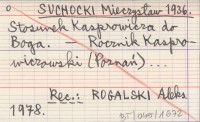 SUCHOCKI Mieczysław 1936.
Stosunek Kasprowicza do
Boga. Rocznik Kaspro-
wiczowski (Poznań) ...
Rec.: ROGALSKI Aleks
1978.